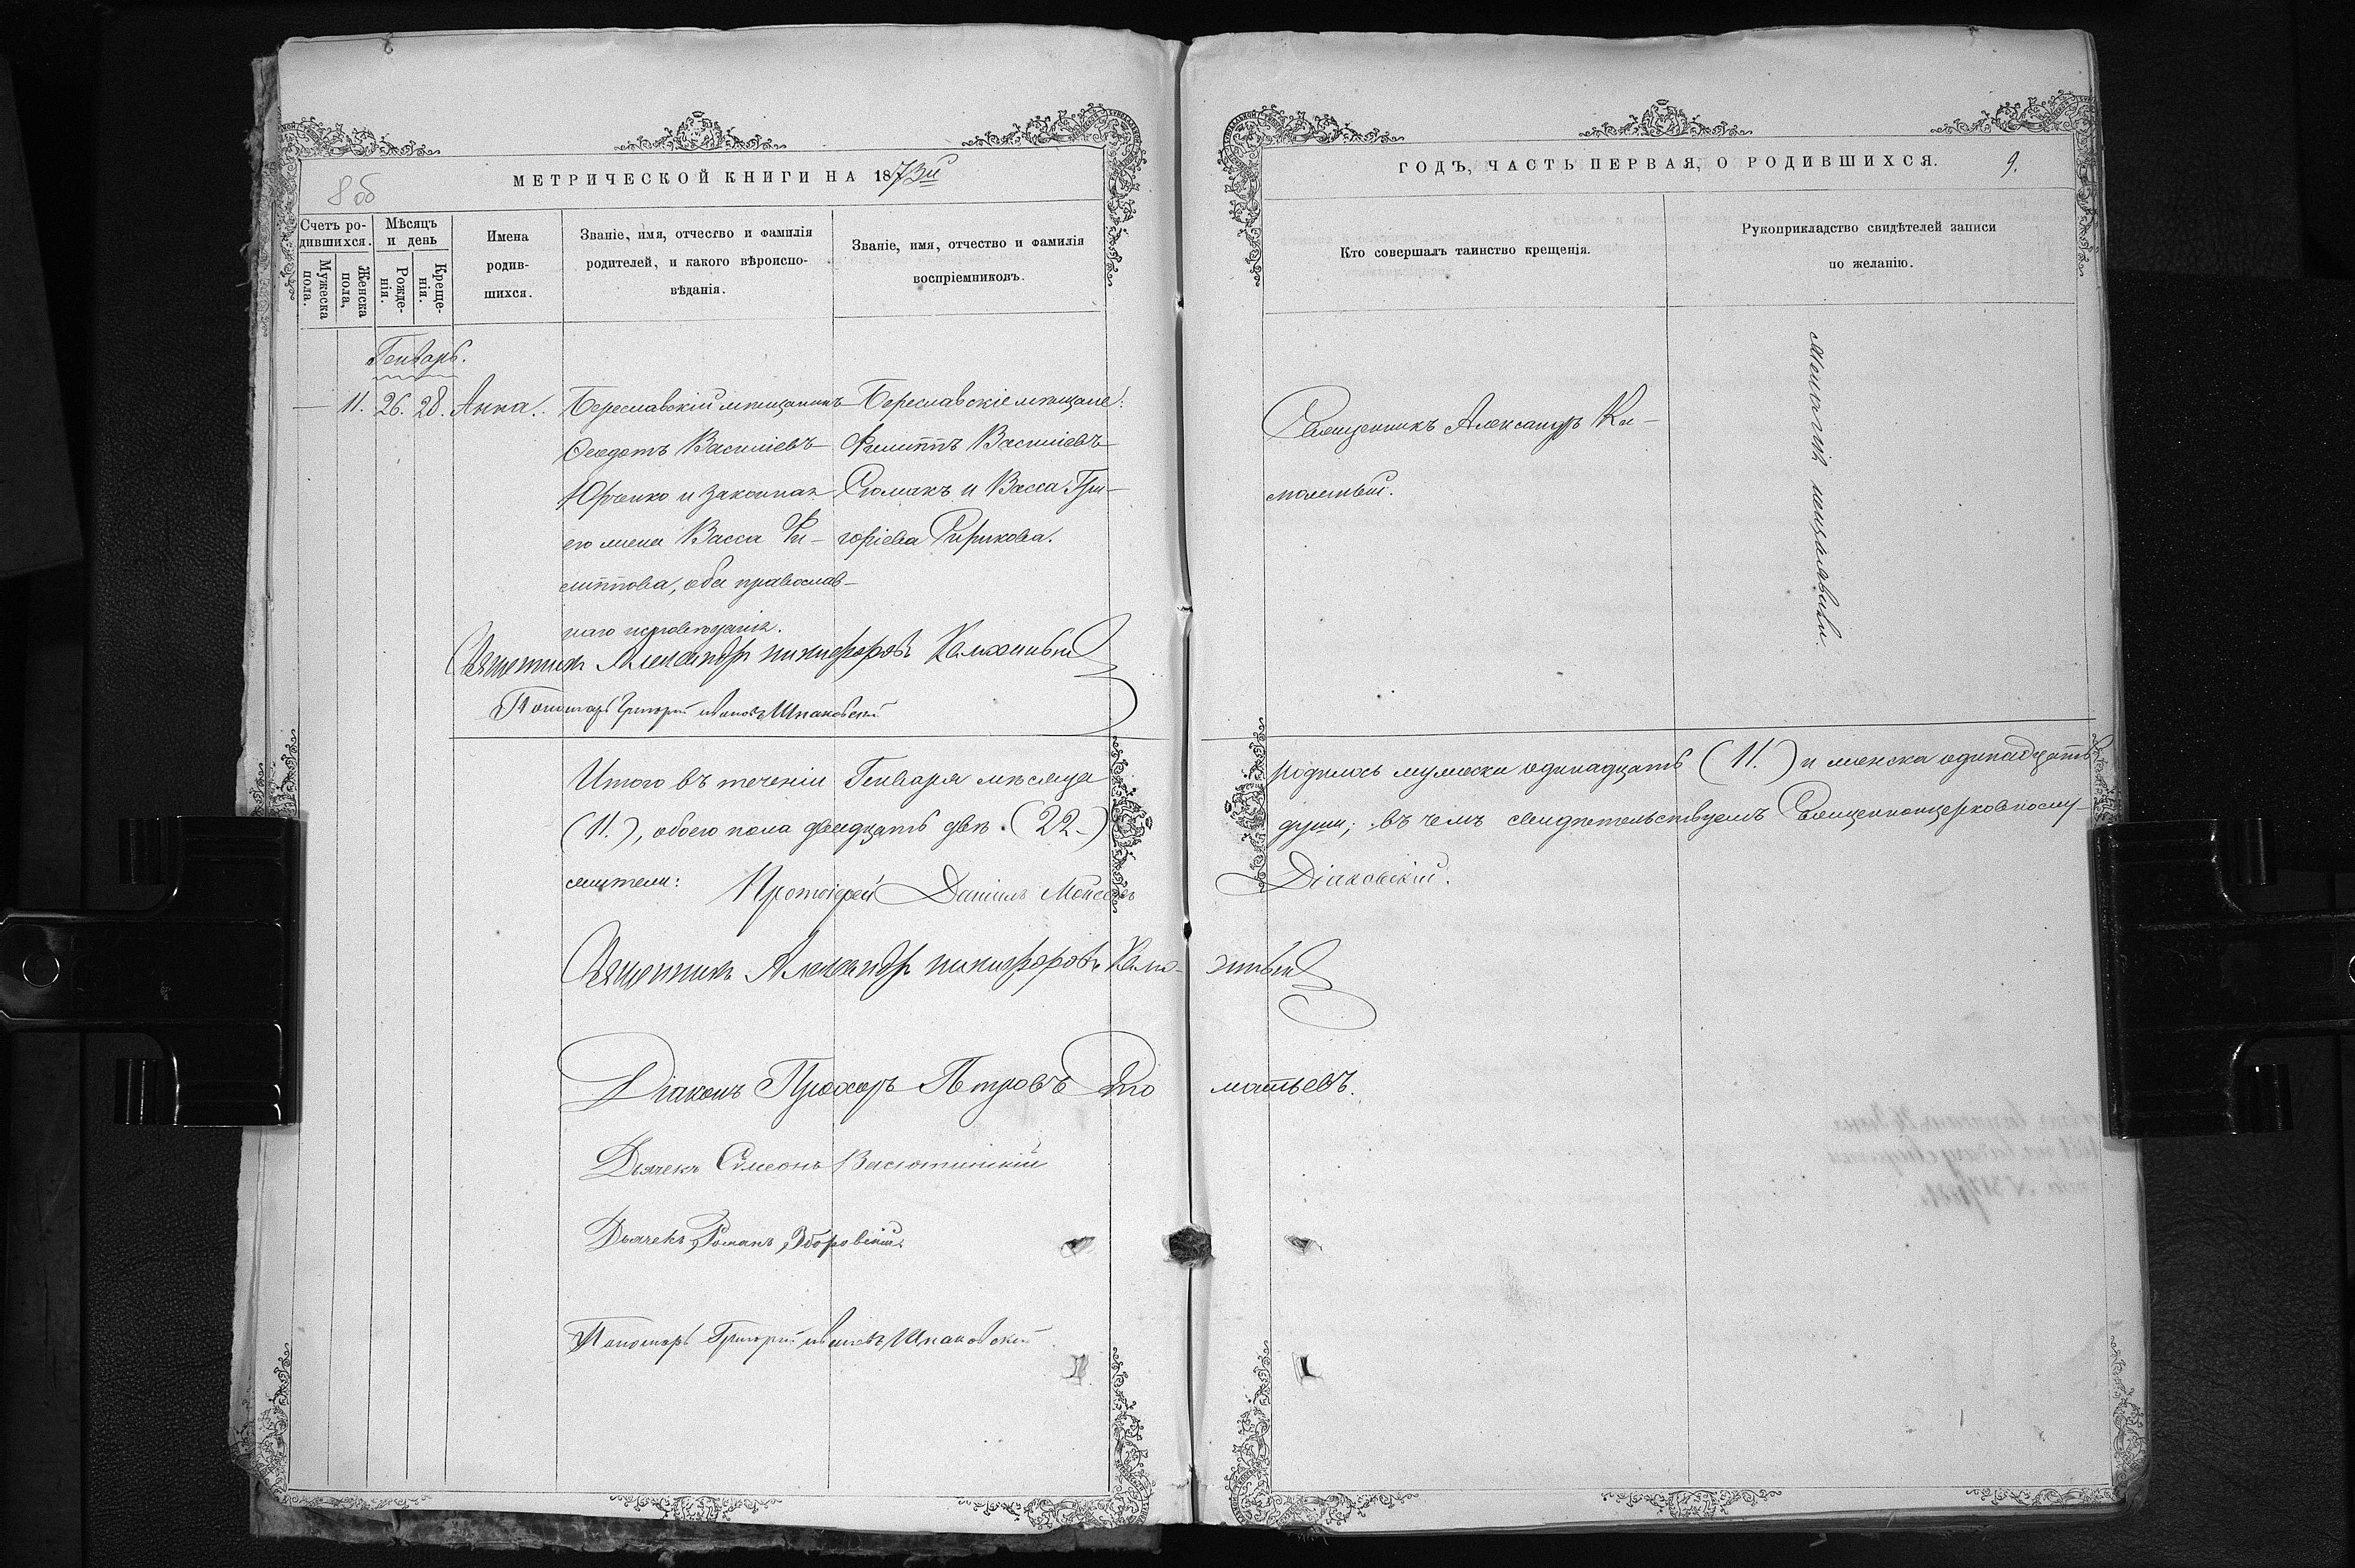 8 об
МЕТРИЧЕСКОЙ КНИГИ НА 1873й
Счетъ ро-
дившихся.
Мужеска
пола.
Женска
пола,
Мѣсяцъ
и день
Рожде-
нія.
Креще-
нія.
Имена
родив-
шихся.
Званіе, имя, отчество и фамилія
родителей, и какого вѣроиспо-
вѣданія.
Званіе, имя, отчество и фамилія
воспріемниковъ.
Генварь.
— 11. 26. 28. Анна.
Береславскій мѣщанинъ
Ѳеодотъ Василіевъ
Юрченко и законная
его жена Васса Фи-
липпова, оба православ-
наго исповѣданія.
Береславскіе мѣщане:
Филиппъ Василіевъ
и Васса Гри-
горіева
Священникъ Александръ Никифоровъ
Пономарь Григорій Ивановъ Шпаковскій
Итого въ теченіи Генваря мѣсяца
(11.), обоего пола двадцать двѣ. (22.)
жители:
Протоіерей Даніилъ Моисеевъ
Священникъ Александръ Никифоровъ
Діаконъ Прохоръ Петровъ
Дьячекъ Симеонъ
Дьячекъ Романъ Зборовскій.
Пономарь Григорій Ивановъ Шпаковскій
ГОДЪ, ЧАСТЬ ПЕРВАЯ, О РОДИВШИХСЯ.
9.
Кто совершалъ таинство крещенія.
Рукоприкладство свидѣтелей записи
по желанію.
Священникъ Александръ
родилось мужеска одинадцать (11.) и женска одинадцать
души; въ чемъ свидѣтельствуемъ Священноцерковнослу-
Діаковскій.
матьевъ.